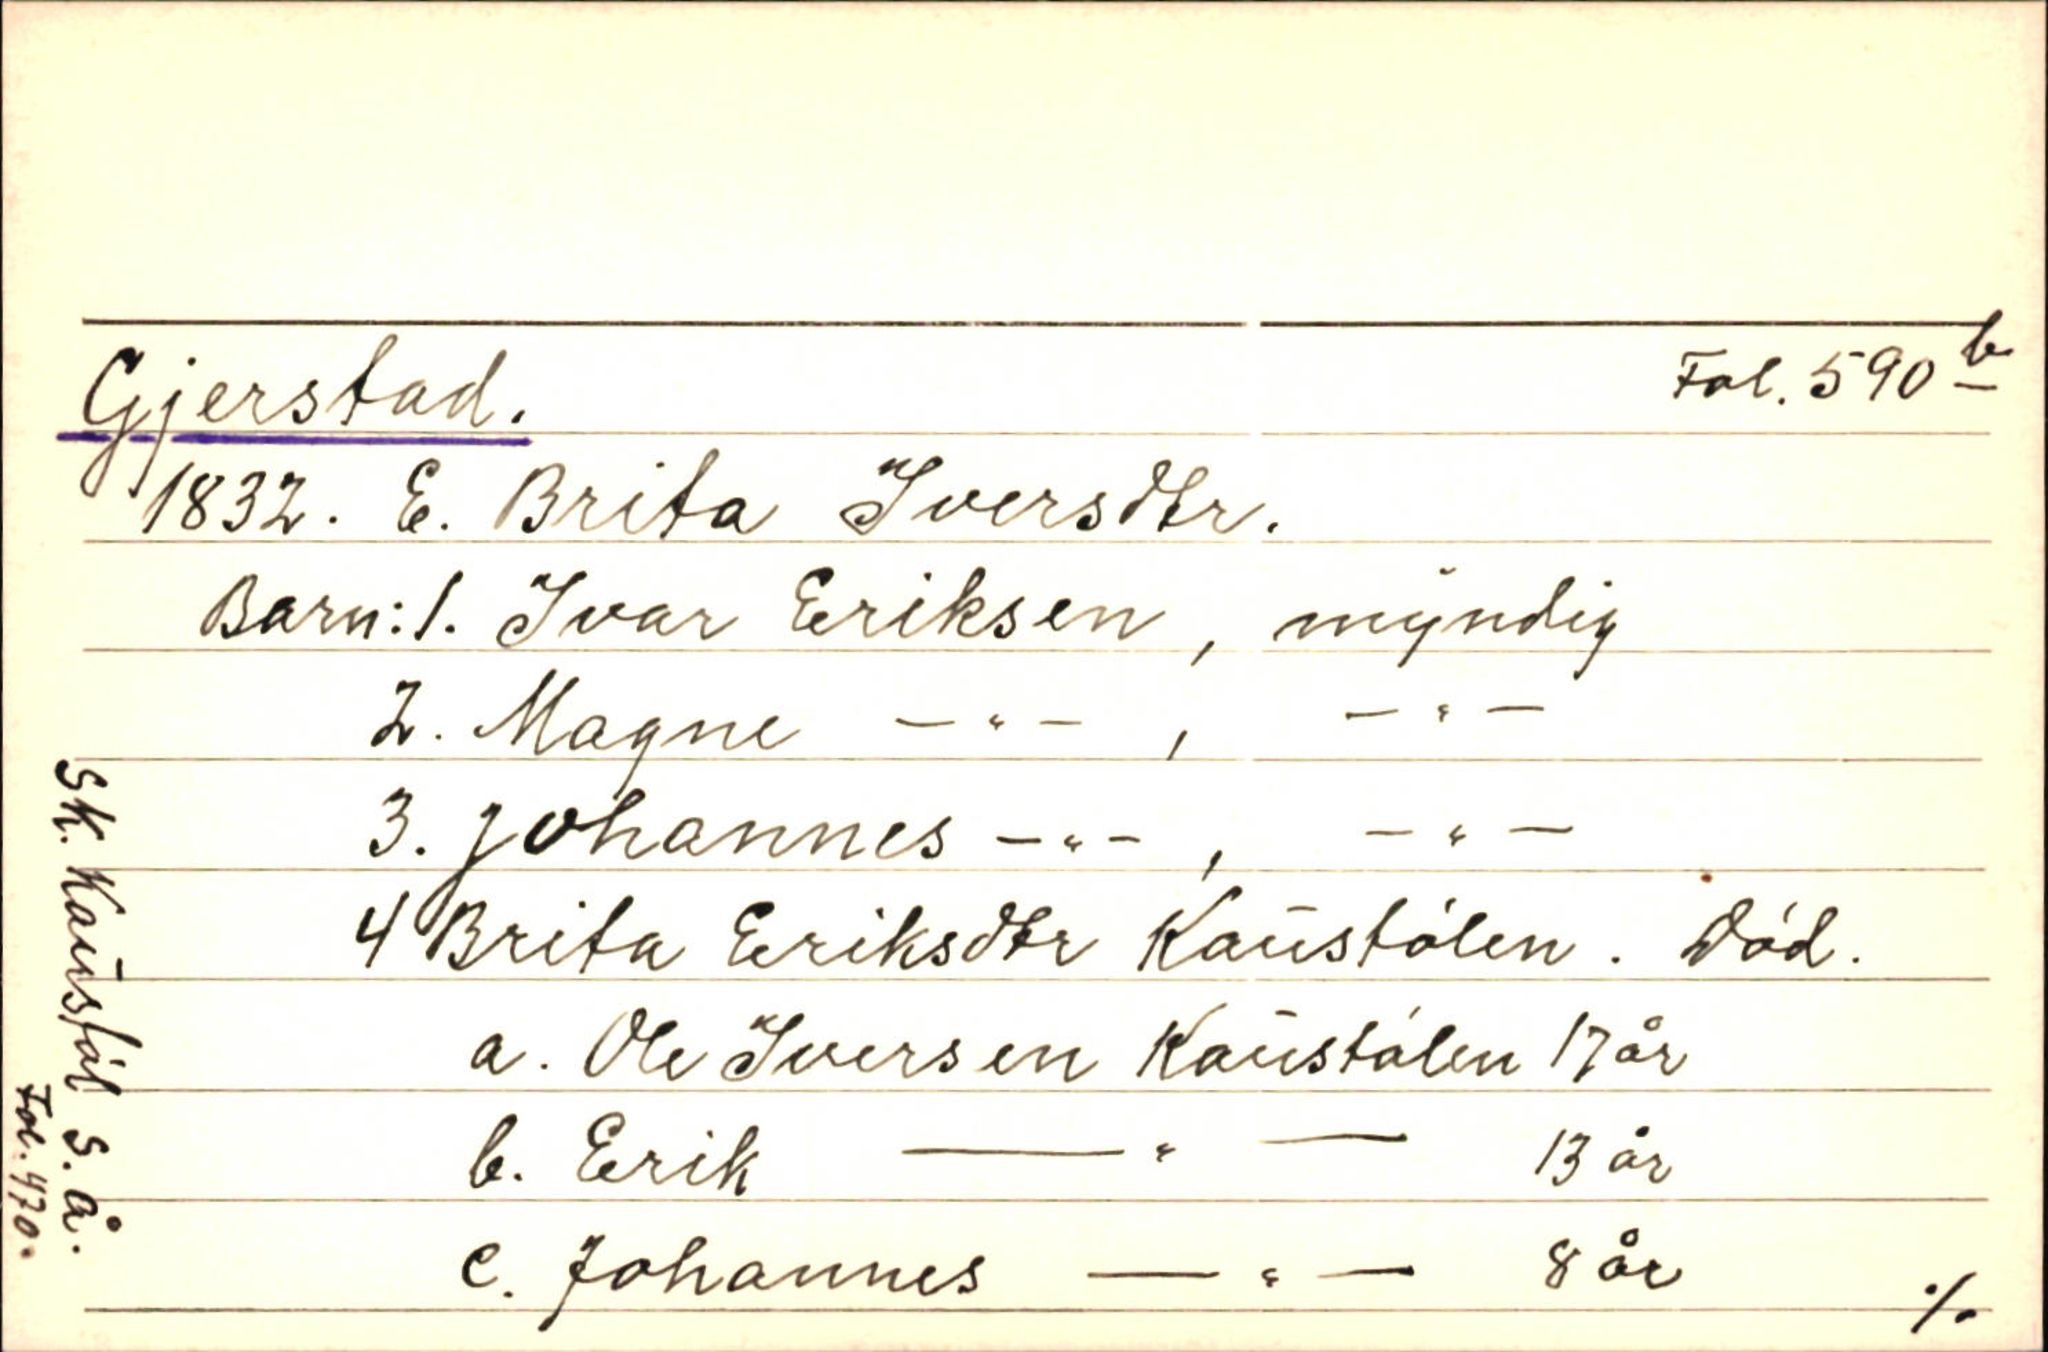 Gjerstad. Fol. 590 b
1832. E. Brita Iversdtr.
Barn: 1. Ivar Eriksen, myndig
2. Magne —〃—, —〃—
3. Johannes —〃—, —〃—
4 Brita Eriksdtr Kaustólen. Dód.
a. Ole Iversen Kaustólen 17 år
b. Erik —〃— 13 år
c. Johannes —〃— 8 år
./.
Sk. Kaustól s. å.
Fol. 470.